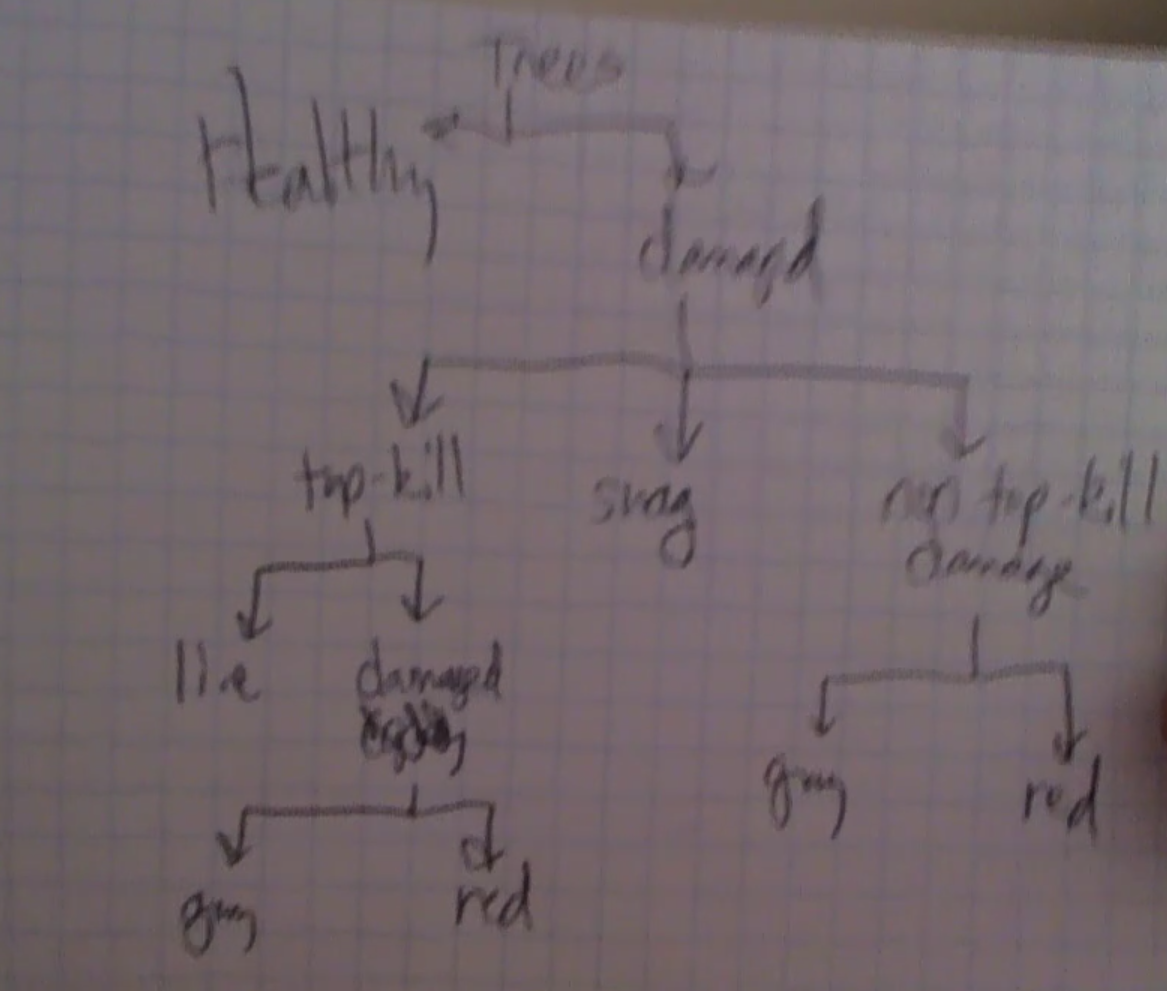 Trees
Healthy
damagd
top-kill
snag
non top-kill
damage
live
damaged
gray
red
gray
red